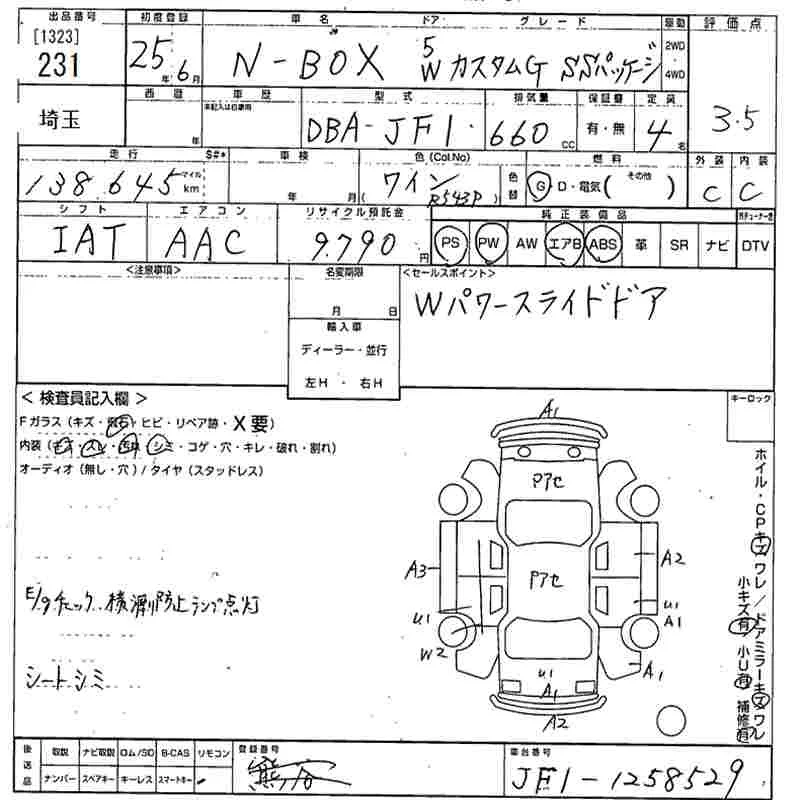 出品番号 初度登録 車名 ドア グレード 駆動 評価点
[1323] 231 25年 6月 N-BOX 5 W カスタムG SSパッケージ 2WD・4WD 3.5
西暦 年 車歴 未記入は自家用 型式 排気量 保証書 定員
埼玉 DBA-JF1 660 CC 有・無 4名
走行 S#* 車検 色(Col.No) 燃料 外装 内装
138,645 マイル km 年 月 ( ワイン R543P ) 色替 G・D・電気( その他 ) C C
シフト エアコン リサイクル預託金 純正装備品
IAT AAC 9.790円 PS PW AW エアB ABS 革 SR ナビ DTV
<注意事項> 名変期限 <セールスポイント>
月 日 Wパワースライドドア
輸入車
ディーラー・並行
左H ・ 右H
< 検査員記入欄 > キーロック
Fガラス(キズ・飛石・ヒビ・リペア跡・X要)
内装(キズ・スレ・汚れ・シミ・コゲ・穴・キレ・破れ・割れ)
オーディオ(無し・穴)/タイヤ(スタッドレス)
E/gチェック、横滑り防止ランプ点灯
シートシミ
A1
Pアセ
A3 Pアセ A2
U1 U1
W2 A1
U1 A1
A1
A2
ホイル・CPキズワレ/ドアミラーキズワレ
小キズ有 小U有 補修有
後送品 取説 ナビ取説 ロム/SD B-CAS リモコン 登録番号 車台番号
ナンバー スペアキー キーレス スマートキー 熊谷 JF1-1258529